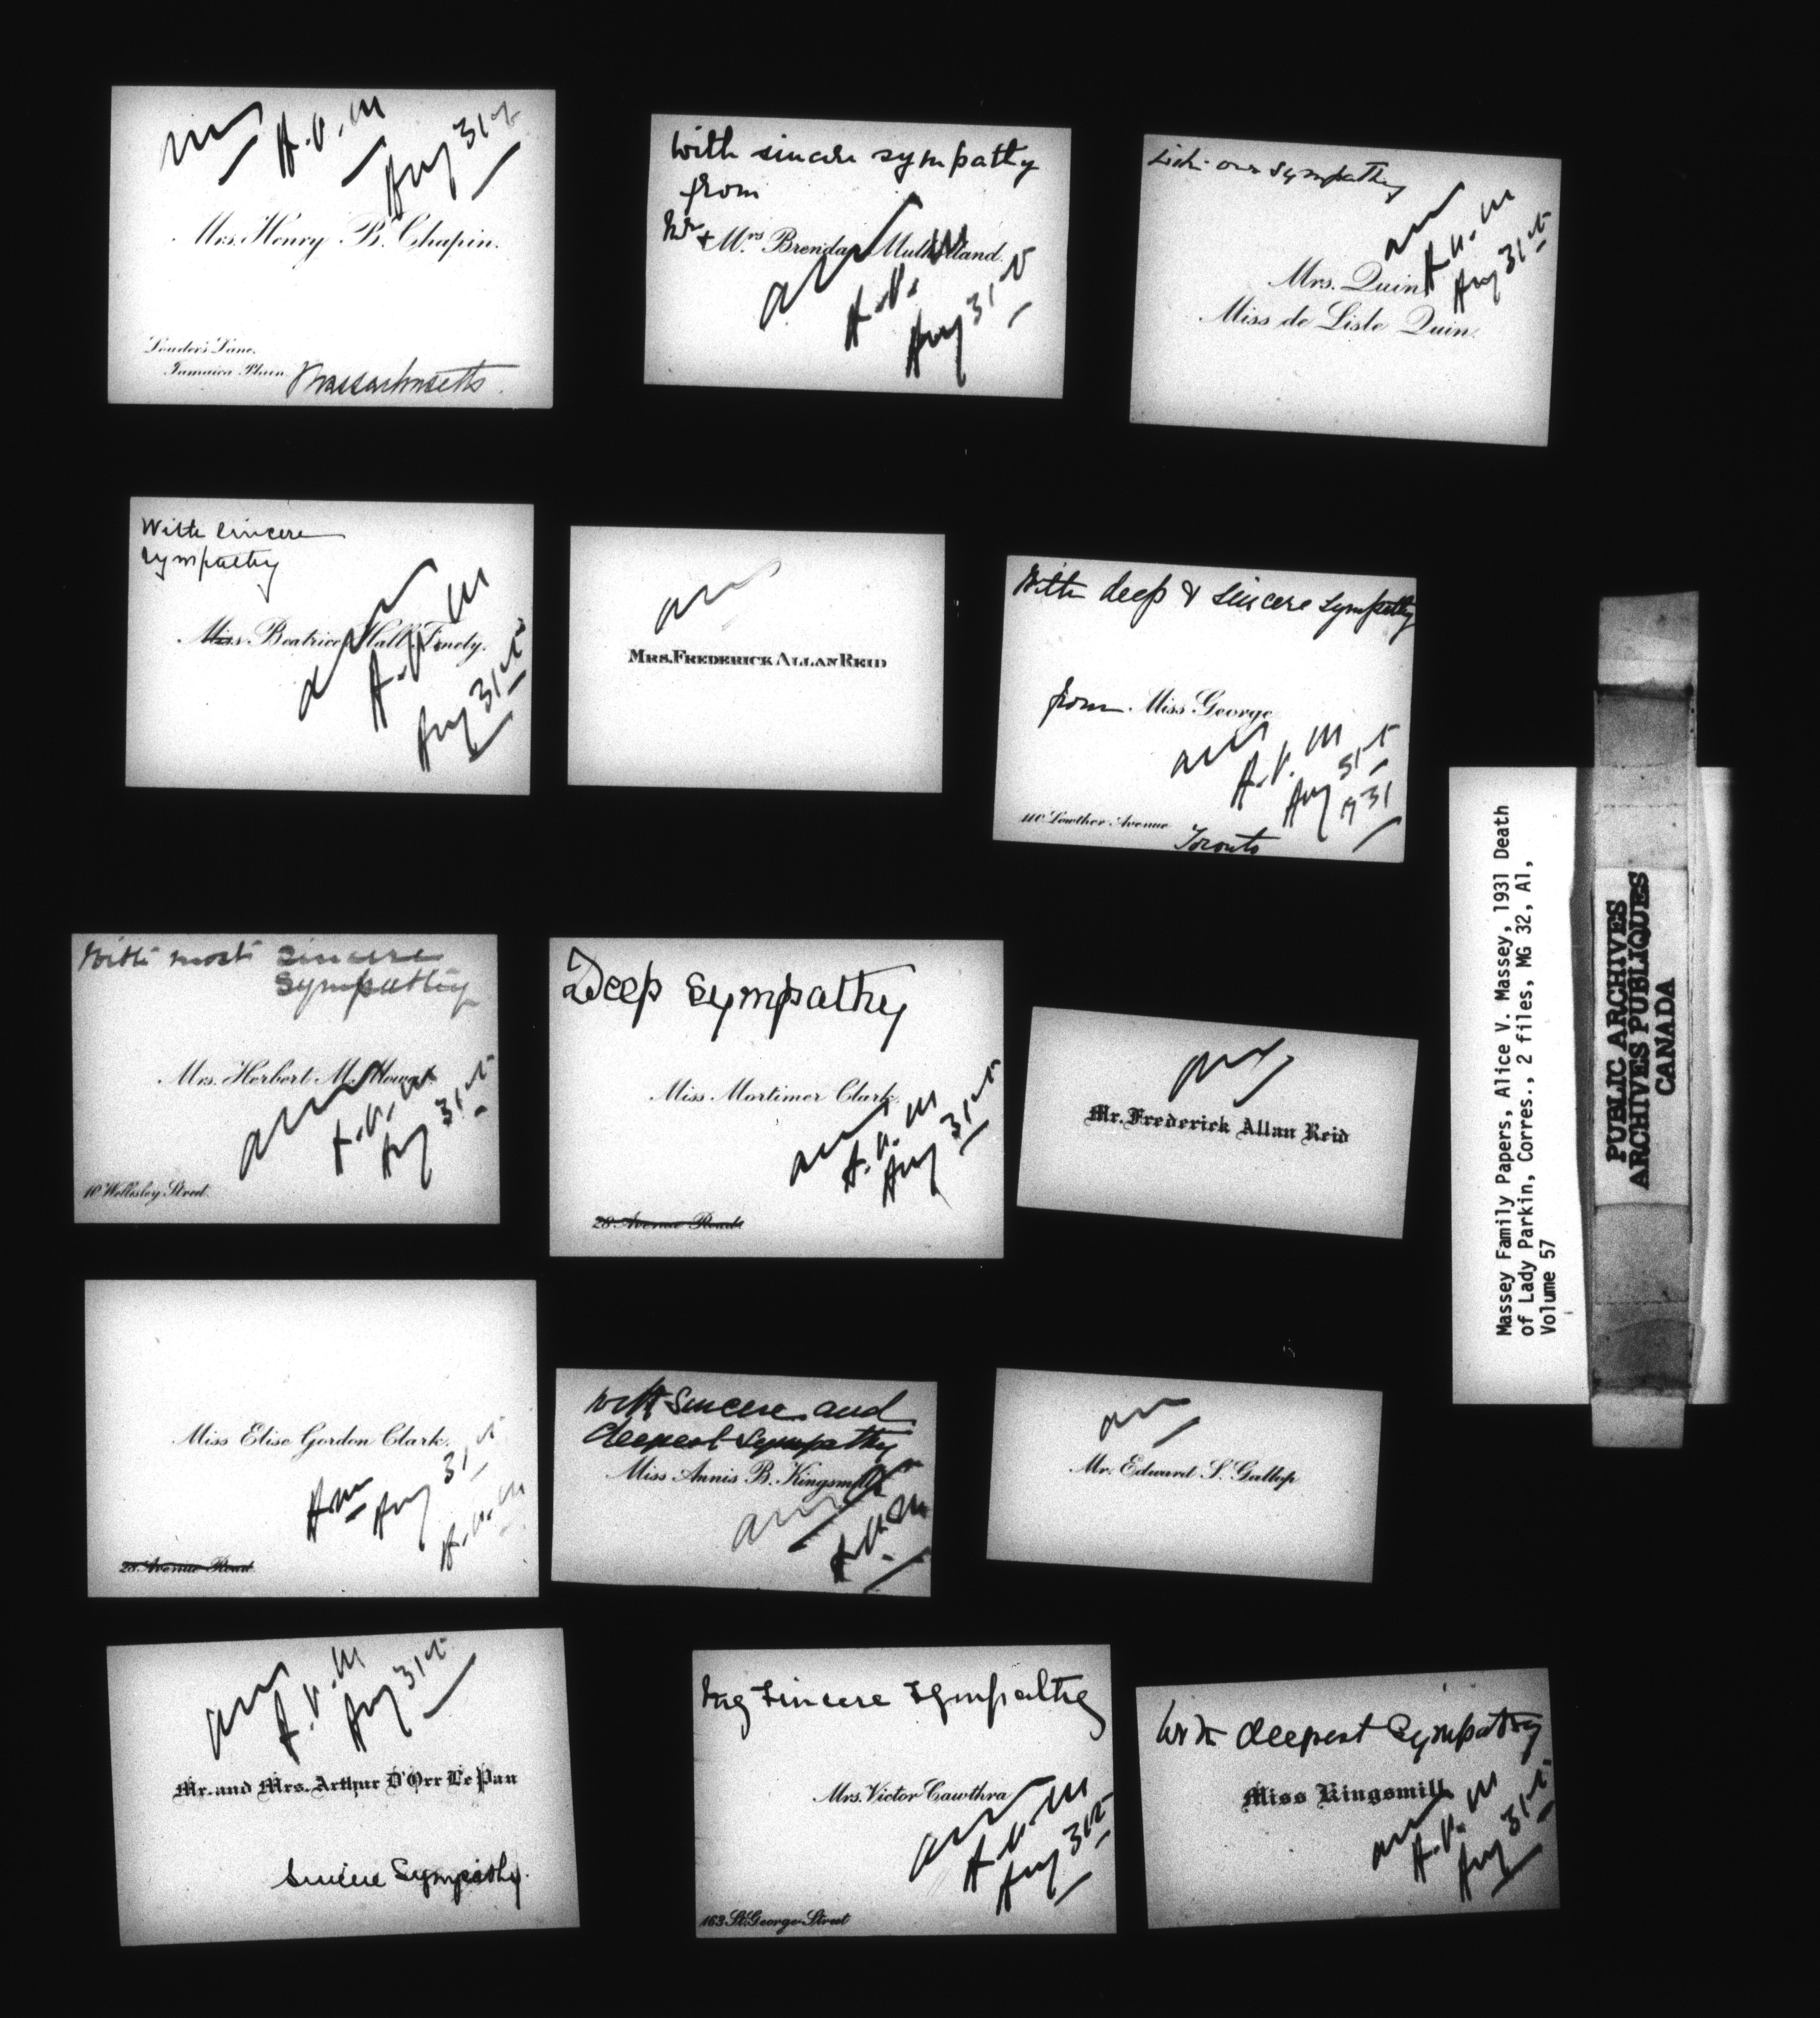 ans
A.V.M
Aug 31st
Mrs. Henry B. Chapin.
Louder's Lane.
Jamaica Plain
Massachusetts.
With sincere sympathy
from
Mr + Mrs Brendan Mulholland.
ans
A.V.M
Aug 31st
With our sympathy
ans
A.V.M
Aug 31st
Mrs. Quin
Miss de Lisle Quin.
With sincere
sympathy
Miss Beatrice Hall
ans
A.V.M
Aug 31st
ans
MRS. FREDERICK ALLAN REID
With deep & sincere sympathy
from Miss George
ans
A.V.M
Aug 31st
1931
110 Lowther Avenue
Toronto
With most sincere
sympathy
Mrs. Herbert M. Mowat.
ans
A.V.M
Aug 31st
10 Wellesley Street.
Deep Sympathy
Miss Mortimer Clark.
ans
A.V.M
Aug 31st
28 Avenue Road
ans
Mr. Frederick Allan Reid
Miss Elise Gordon Clark.
ans
Aug 31st
A.V.M
28 Avenue Road
With sincere and
deepest sympathy
Miss Annis B. Kingsmill
ans
A.V.M
ans
Mr. Edward S. Gallop
ans
A.V.M
Aug 31st
Mr. and Mrs. Arthur D'Orr Le Pan
Sincere Sympathy.
My sincere sympathy
Mrs. Victor Cawthra
ans
A.V.M
Aug 31st
163 St. George Street
With deepest sympathy
Miss Kingsmill
ans
A.V.M
Aug 31st
Massey Family Papers, Alice V. Massey, 1931 Death
of Lady Parkin, Corres., 2 files, MG 32, A1,
Volume 57
PUBLIC ARCHIVES
ARCHIVES PUBLIQUES
CANADA